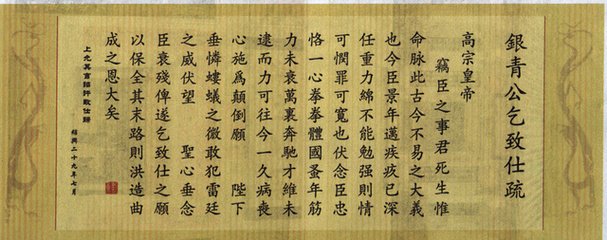 銀青公乞致仕疏
高宗皇帝
竊臣之事君死生惟
命脈此古今不易之大義
也今臣景年邁疾疚已深
任重力綿不能勉强則情
可憫罪可寬也伏念臣忠
恪一心拳拳體國蚤年筋
力未衰萬裏奔馳才維未
逮而力可往今一久病喪
心施為顛倒願　陛下
垂憐螻蟻之微敢犯雷霆
之威伏望　聖心垂念
臣衰殘俾遂乞致仕之願
以保全其末路則洪造曲
成之恩大矣
上允其言詔許致仕歸
紹興二十九年七月